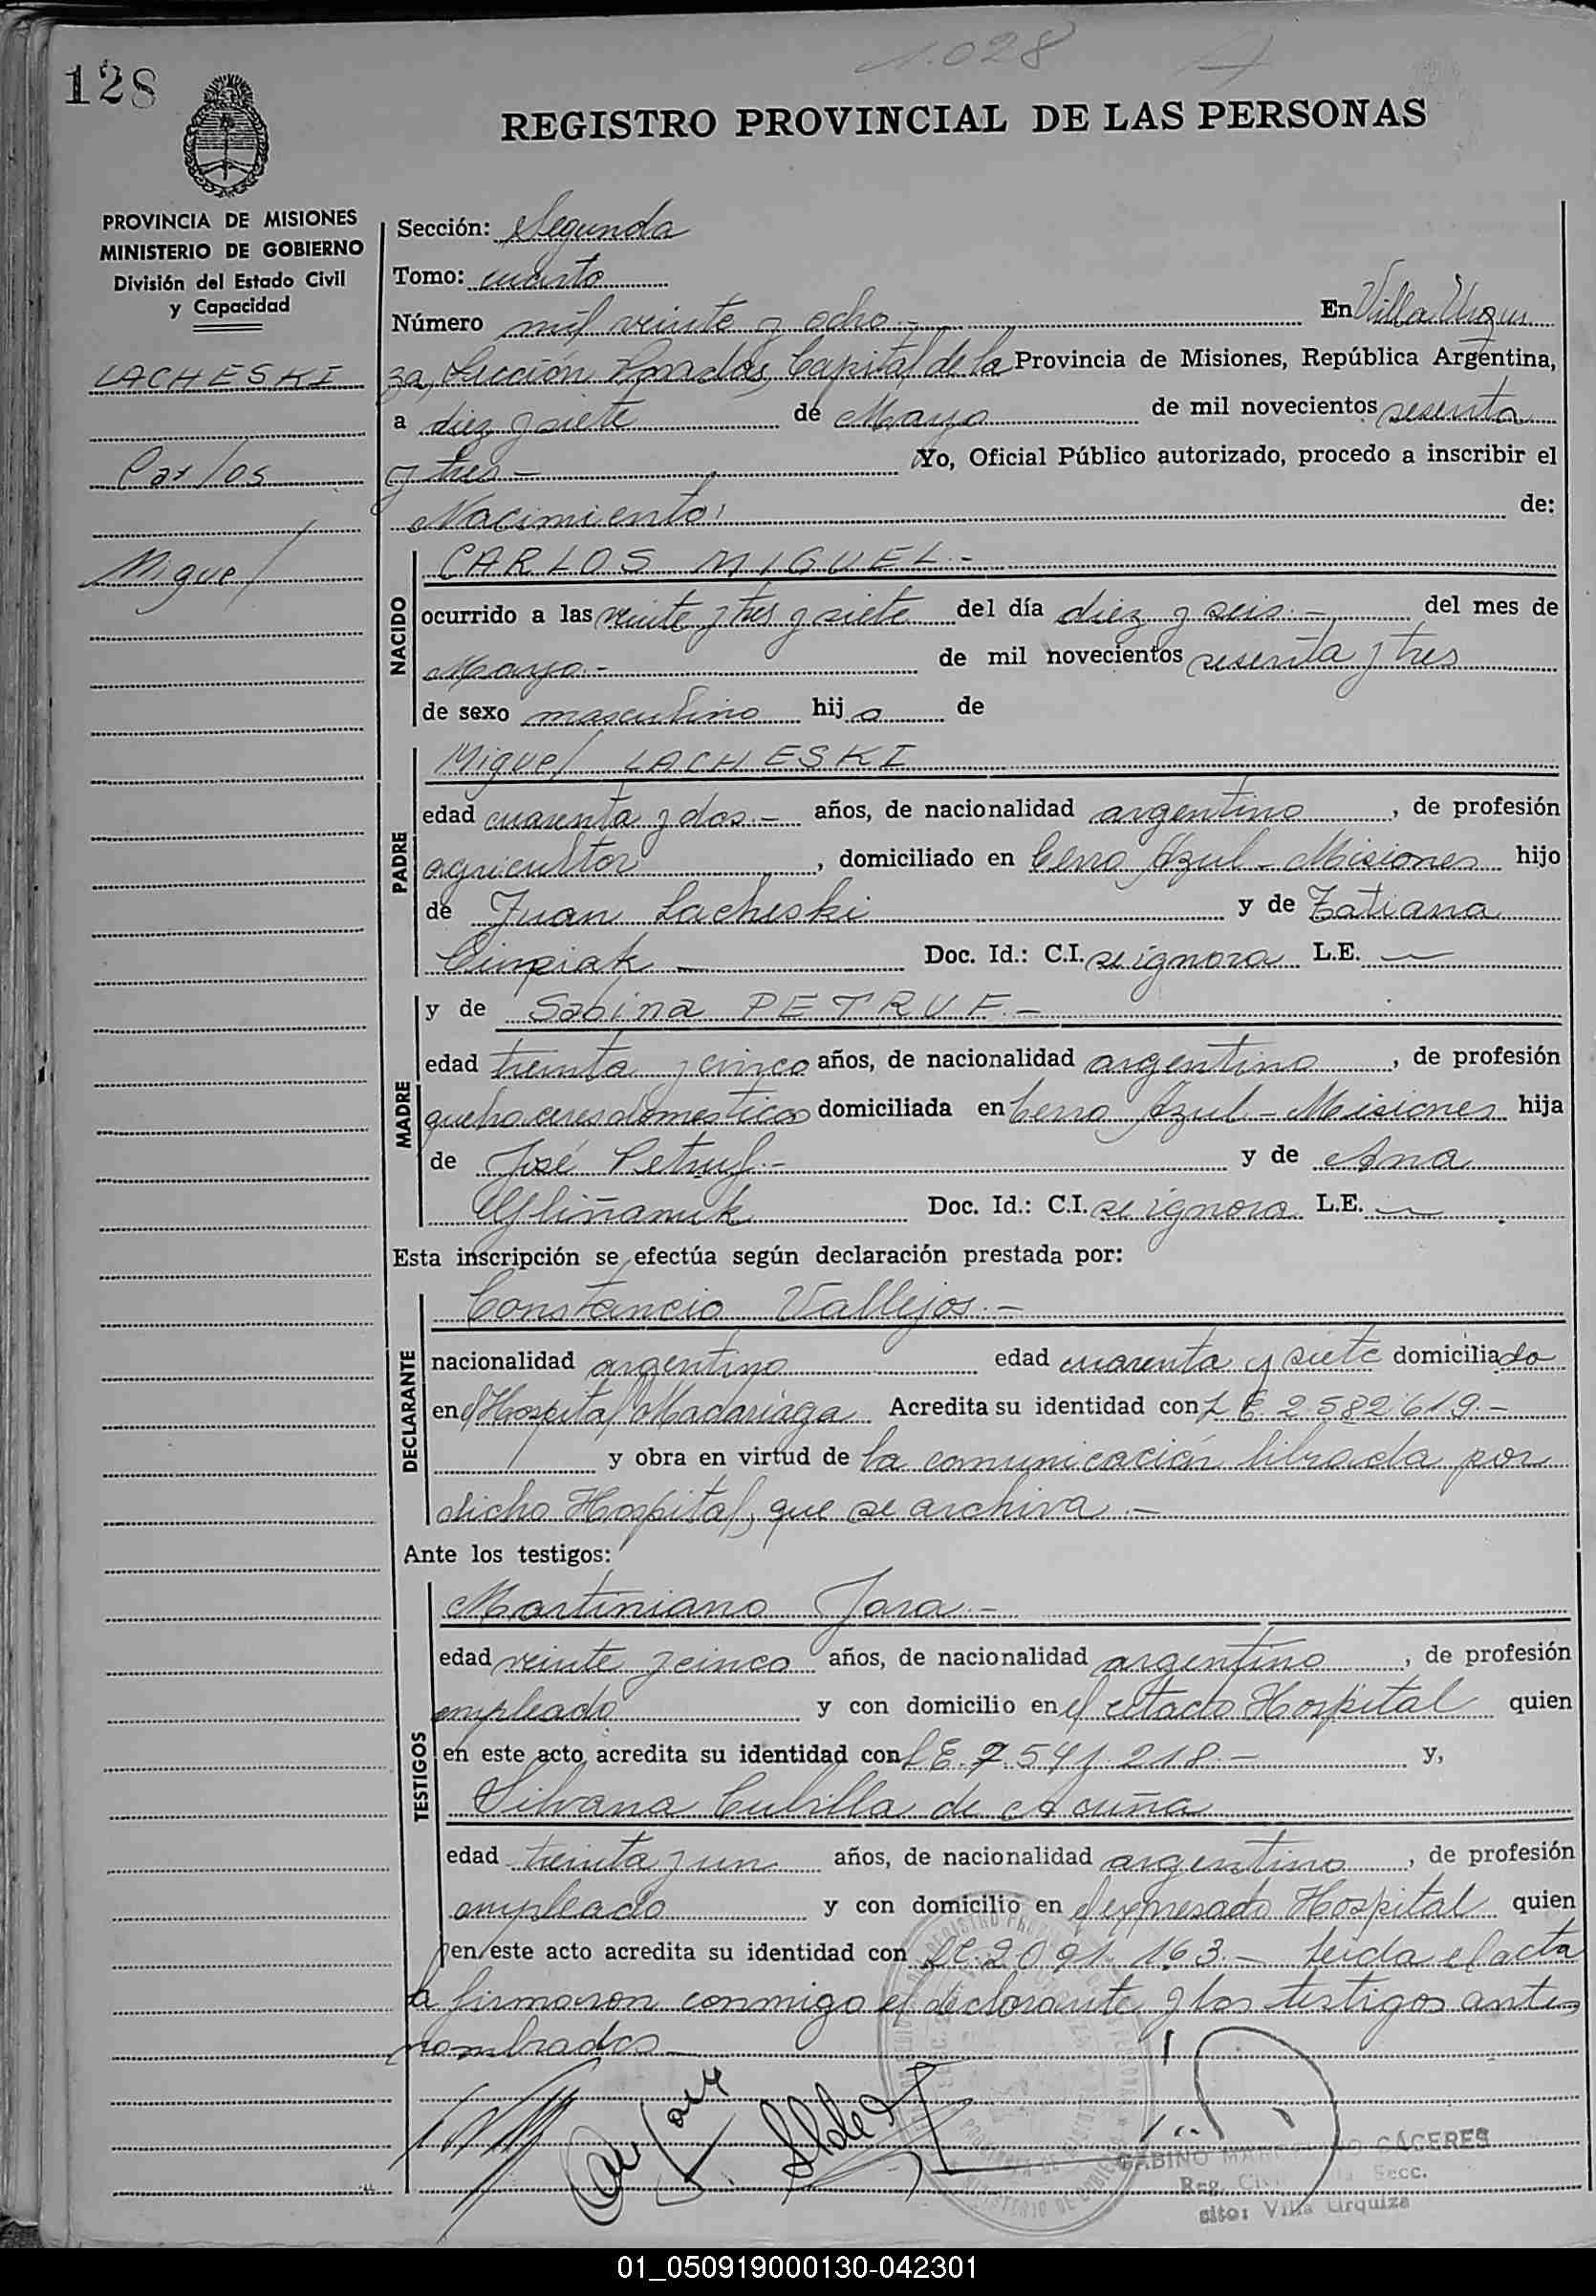 1.028
128
REGISTRO PROVINCIAL DE LAS PERSONAS
PROVINCIA DE MISIONES
MINISTERIO DE GOBIERNO
División del Estado Civil
y Capacidad
LACHESKI
Carlos
Miguel
Sección: Segunda
Tomo: cuarto
Número mil veinte y ocho.- En Villa Urqui
za, Sección Posadas, Capital de la Provincia de Misiones, República Argentina,
a diez y siete de Mayo de mil novecientos sesenta
y tres - Yo, Oficial Público autorizado, procedo a inscribir el
Nacimiento de:
NACIDO
CARLOS MIGUEL.-
ocurrido a las veinte y tres y siete del día diez y seis.- del mes de
Mayo.- de mil novecientos sesenta y tres
de sexo masculino hijo de
PADRE
Miguel LACHESKI
edad cuarenta y dos.- años, de nacionalidad argentino, de profesión
agricultor, domiciliado en Cerro Azul - Misiones hijo
de Juan Lacheski y de Tatiana
Doc. Id.: C.I. se ignora L.E. —
MADRE
y de Sabina PETRUF.-
edad treinta y cinco años, de nacionalidad argentina, de profesión
quehaceres domesticos domiciliada en Cerro Azul - Misiones hija
de José Petruf.- y de Ana
Doc. Id.: C.I. se ignora L.E. —
Esta inscripción se efectúa según declaración prestada por:
DECLARANTE
Constancio Vallejos.-
nacionalidad argentino edad cuarenta y siete domiciliado
en el Hospital Madariaga Acredita su identidad con L E 2582619.-
y obra en virtud de la comunicación librada por
dicho Hospital, que se archiva.-
Ante los testigos:
TESTIGOS
Martiniano Jara -
edad veinte y cinco años, de nacionalidad argentino, de profesión
empleado y con domicilio en el citado Hospital quien
en este acto acredita su identidad con L E. 7.541.218.- y,
Silvana Cubilla de Acuña
edad treinta y un años, de nacionalidad argentina, de profesión
empleado y con domicilio en el expresado Hospital quien
en este acto acredita su identidad con LC. 2.091.163.- Leida el acta
la firmaron conmigo el declarante y los testigos antes
nombrados
GABINO CACERES
Reg. Secc.
sito: Villa Urquiza
01_050919000130-042301